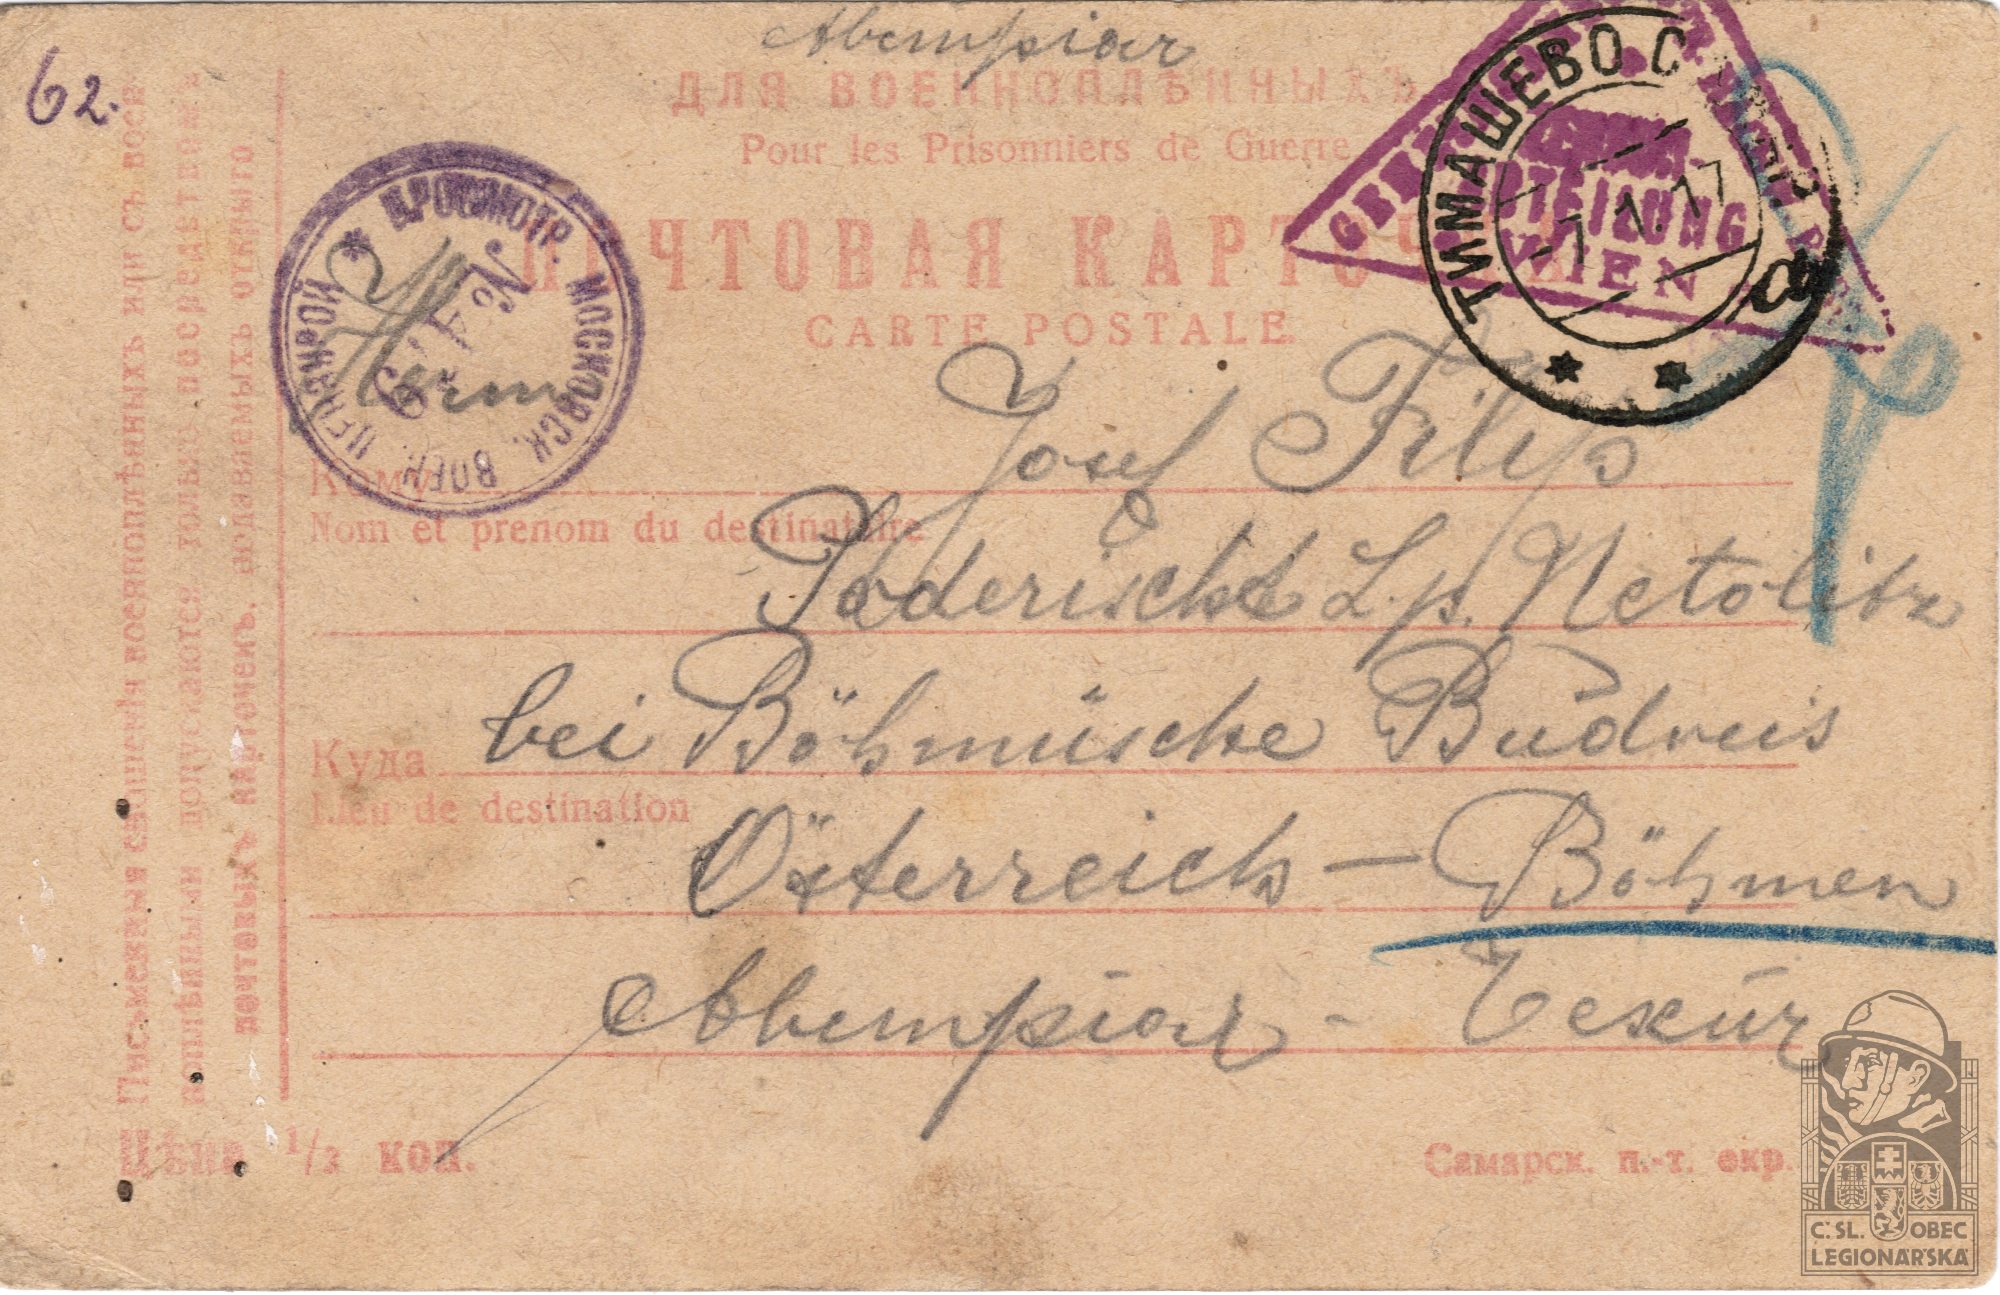 62.
Abempiar
ДЛЯ ВОЕННОПЛѢННЫХЪ
Pour les Prisonniers de Guerre
ПОЧТОВАЯ КАРТОЧКА
CARTE POSTALE
ТИМАШЕВО САМАР
-7 1.17
а
WIEN
ПРОСМОТР. МОСКОВСК. ВОЕН. ЦЕНЗУРОЙ
Herrn
Josef Filip
Кому
Nom et prenom du destinataire
L.p. Netolitz
bei Böhmische Budweis
Куда
Lieu de destination
Österreich – Böhmen
Abbempiar -
Письменныя сношенія военноплѣнныхъ или съ воен-
ноплѣнными допускаются только посредствомъ
почтовыхъ карточекъ, подаваемыхъ открыто
Цѣна 1/3 коп.
Самарск. п.-т. окр.
Č. SL. OBEC
LEGIONÁŘSKÁ